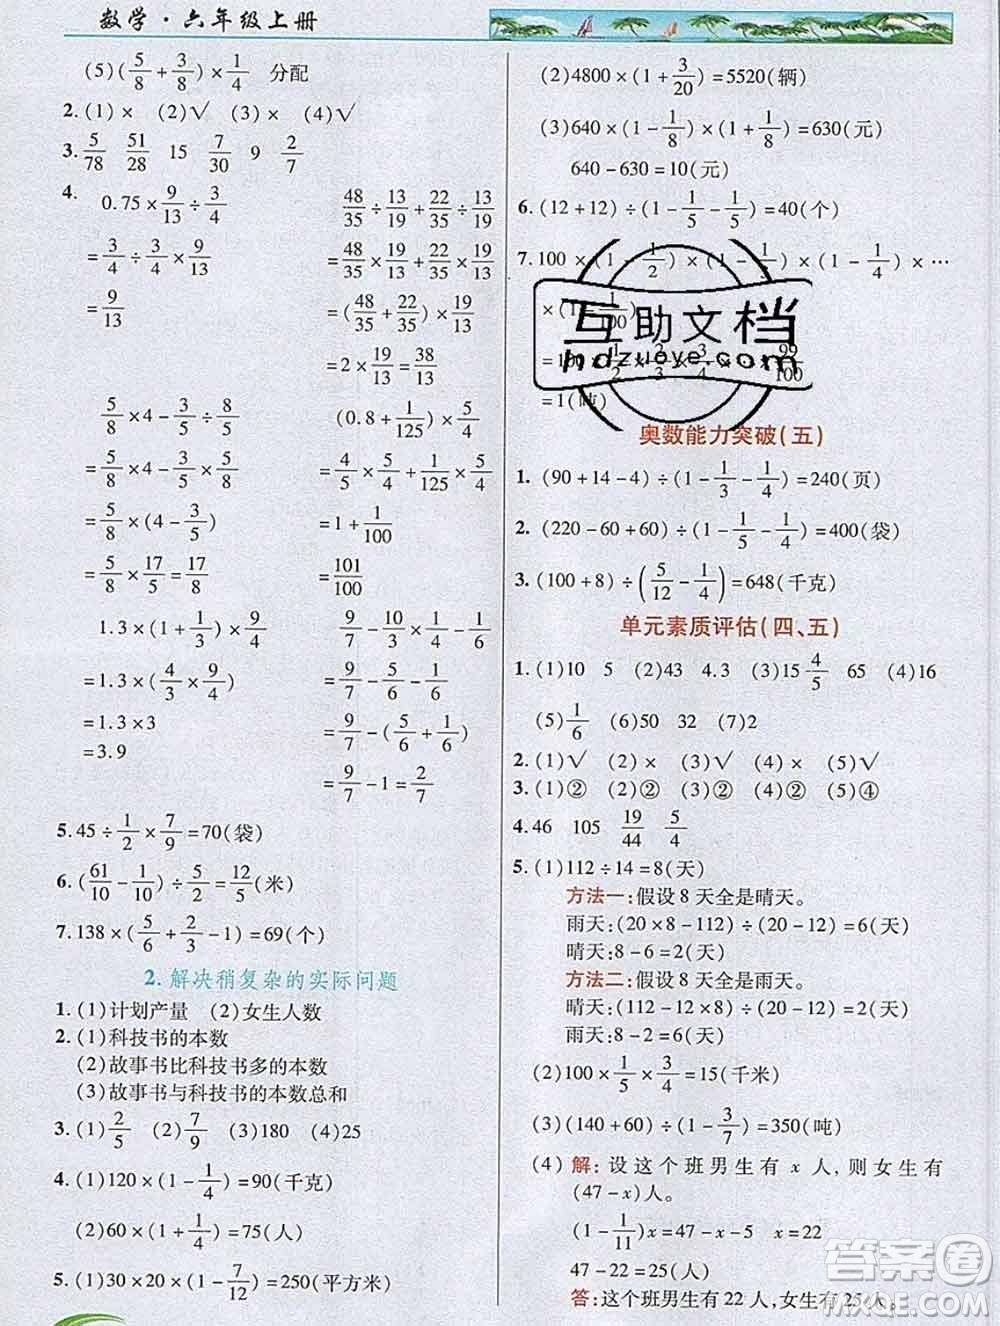 数学·六年级上册
(5)(5/8+3/8)×1/4 分配
2.(1)× (2)√ (3)× (4)√
3. 5/78 51/28 15 7/30 9 2/7
4. 0.75×9/13÷3/4
=3/4÷3/4×9/13
=9/13
48/35÷13/19+22/35÷13/19
=48/35×19/13+22/35×19/13
=(48/35+22/35)×19/13
=2×19/13=38/13
5/8×4-3/5÷8/5
=5/8×4-3/5×5/8
=5/8×(4-3/5)
=5/8×17/5=17/8
(0.8+1/125)×5/4
=4/5×5/4+1/125×5/4
=1+1/100
=101/100
1.3×(1+1/3)×9/4
=1.3×(4/3×9/4)
=1.3×3
=3.9
9/7-4/3×1/4-1/6
=9/7-5/6-1/6
=9/7-(5/6+1/6)
=9/7-1=2/7
5.45÷1/2×7/9=70(袋)
6.(61/10-1/10)÷5/2=12/5(米)
7.138×(5/6+2/3-1)=69(个)
2.解决稍复杂的实际问题
1.(1)计划产量 (2)女生人数
2.(1)科技书的本数
(2)故事书比科技书多的本数
(3)故事书与科技书的本数总和
3.(1)2/5 (2)7/9 (3)180 (4)25
4.(1)120×(1-1/4)=90(千克)
(2)60×(1+1/4)=75(人)
5.(1)30×20×(1-7/12)=250(平方米)
(2)4800×(1+3/20)=5520(辆)
(3)640×(1-1/8)×(1+1/8)=630(元)
640-630=10(元)
6.(12+12)÷(1-1/5-1/5)=40(个)
7.100×(1-1/2)× ×(1-1/4)×…
×(1-1/100)
=100×1/2×2/3×3/4× 99/100
=1(吨)
互助文档
hdzuoye.com
奥数能力突破(五)
1.(90+14-4)÷(1-1/3-1/4)=240(页)
2.(220-60+60)÷(1-1/5-1/4)=400(袋)
3.(100+8)÷(5/12-1/4)=648(千克)
单元素质评估(四、五)
1.(1)10 5 (2)43 4.3 (3)15 4/5 65 (4)16
(5)1/6 (6)50 32 (7)2
2.(1)√ (2)× (3)√ (4)× (5)√
3.(1)② (2)② (3)② (4)② (5)④
4.46 105 19/44 5/4
5.(1)112÷14=8(天)
方法一:假设8天全是晴天。
雨天:(20×8-112)÷(20-12)=6(天)
晴天:8-6=2(天)
方法二:假设8天全是雨天。
晴天:(112-12×8)÷(20-12)=2(天)
雨天:8-2=6(天)
(2)100×1/5×3/4=15(千米)
(3)(140+60)÷(1-3/7)=350(吨)
(4)解:设这个班男生有x人,则女生有
(47-x)人。
(1-1/11)x=47-x-5 x=22
47-22=25(人)
答:这个班男生有22人,女生有25人。
答案圈